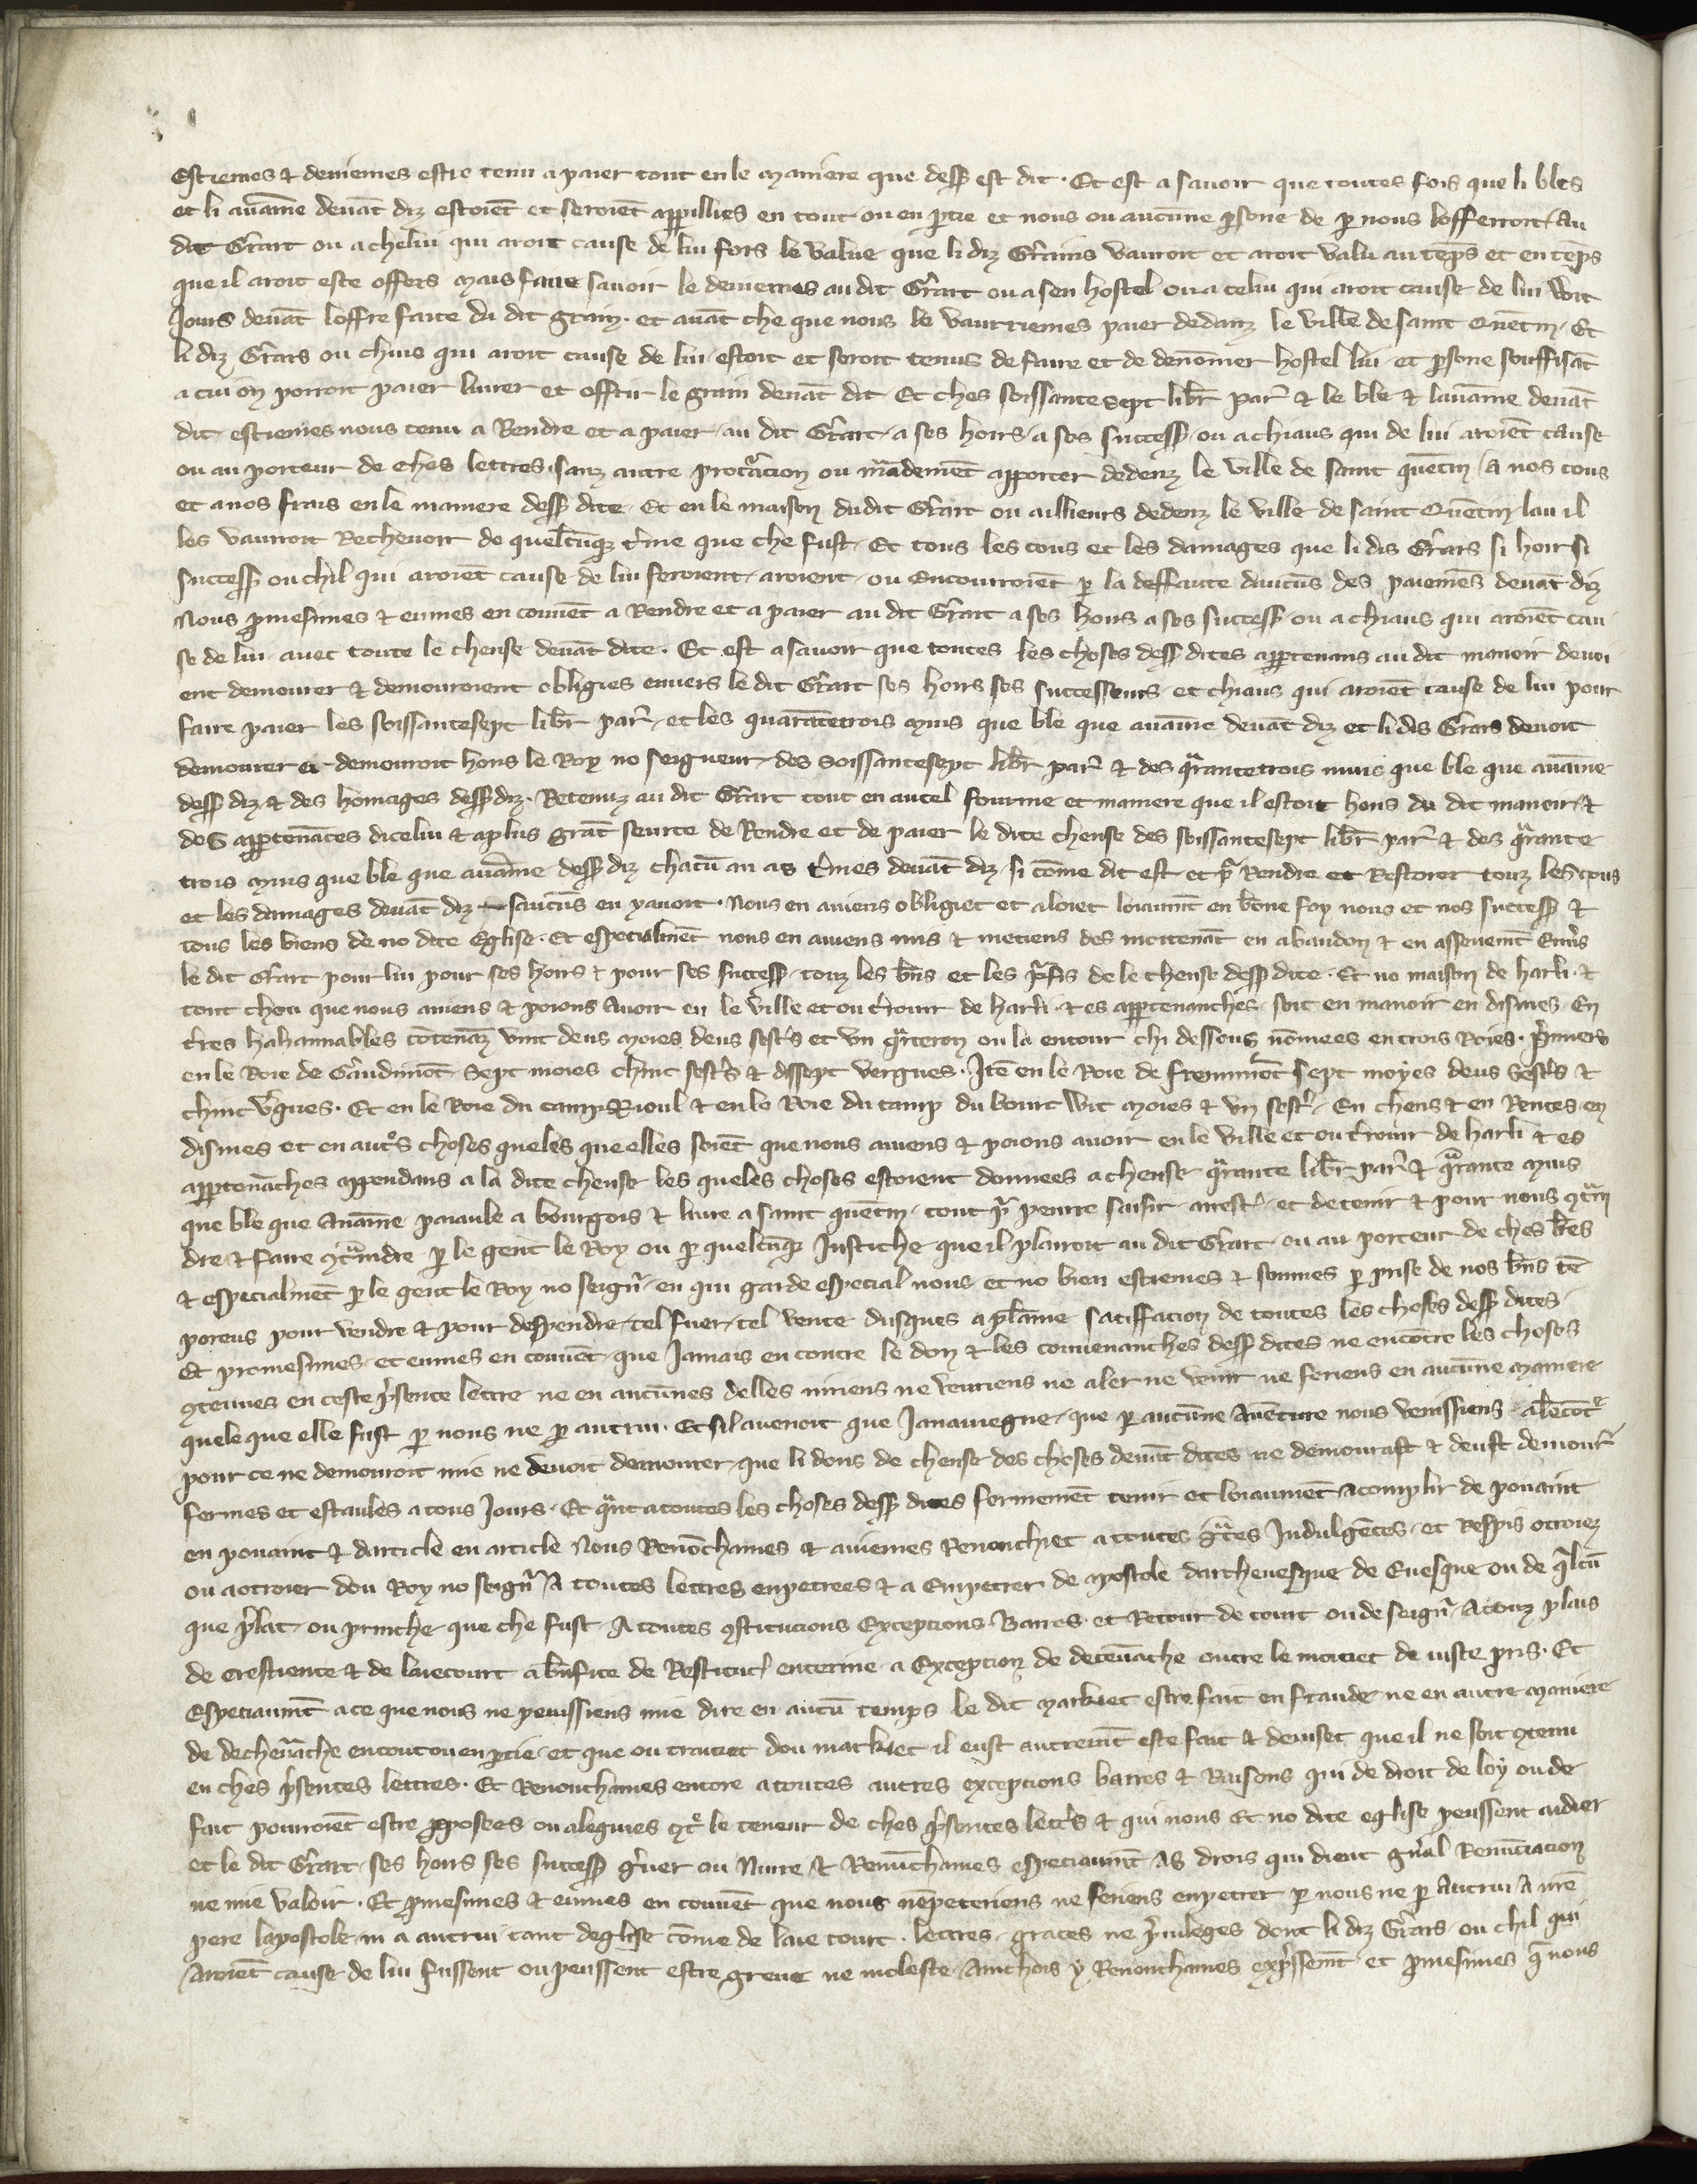 estiemes ⁊ deuiemes estre tenu a paier tout en le maniere que dess᷒ est dit · Et est a sauoir que toutes fois que li bles
et li auaīne deuāt diz estoiēt et seroiēt appillies en tout ou en ꝑtie et nous ou aucune ꝑsone de ꝑ nous lofferroit au
dit Gr̄art ou a cheluı qui aroit cause de lui fors le value que li diz Grains vauroit et aroit valu au tēps et en tēps
que il aroit este offers mais faire sauoir le deuiemes au dit Gr̄art ou a sen hostel ou a celui qui aroit cause de lui wit
Jours deuāt loffre faite du dit grain · et auāt che que nous le vaurriemes paier dedanz le ville de saint Quētin · Et
li diz Gr̄ars ou chius qui aroit cause de lui estoit et seroit tenus de faire et de denōmer hostel lui et ꝑsone souffisāt
a cui on porroit paier liurer et offrir le grain deuāt dit · Et ches soissantesept libr̄ par̄ ⁊ le ble ⁊ lauaīne deuāt
dit estiemes nous tenu a Rendre et a paier au dit Gr̄art a ses hoirs a ses success᷒ ou a chiaus qui de lui aroiēt cause
ou au porteur de ches lettres sanz autre procᵃcion ou mādemēt apporter dedenz le ville de saint quētin / A nos cous
et a nos frais en le maniere dess᷒ dite Et en le maison du dit Gr̄art ou aillieurs dedenz le ville de saint Quētin lau il
les vauroit Recheuoir de quelcūqȝ t̄me que che fust · Et tous les cous et les damages que li dis Gr̄ars si hoir si
success᷒ ou chil qui aroiēt cause de lui feroient aroient ou encourroiēt ꝑ la deffaute daucūs des paiemēs deuāt diz
Nous ꝓmesimes ⁊ eumes en couuēt a Rendre et a paier au dit Gr̄art a ses hoirs a ses success᷒ ou a chiaus qui aroiēt cau
se de lui auec toute le chense deuāt dite · Et est asauoir que toutes les choses dess᷒ dites apptenans au dit manoir deuoi
ent demourer ⁊ demouroient obligies enuers le dit Gr̄art ses hoirs ses successeurs et chiaus qui aroiēt cause de lui pour
faire paier les soissantesept libr̄ par̄ et les quarātetrois muis que ble que auaīne deuāt diz et li dis Gr̄ars deuoit
demourer et demouroit hons le Roy no seigneur des soissantesept libr̄ par̄ ⁊ des qᵃrantetrois muis que ble que auaīne
dess᷒ diz ⁊ des homages dess᷒ diz · Retenuz au dit Gr̄art tout en autel fourme et maniere que il estoit hons du dit manoir ⁊
des apptenāces diceluı ⁊ a plus grāt seurte de Rendre et de paier le dite chense des soissantesept libr̄ par̄ ⁊ des qᵃrante
trois muis que ble que auaīne dess᷒ diz chacū an as t̄mes deuāt diz si cōme dit est et pᵃ Rendre et Restorer touz les cous
et les damages deuāt diz saucūs en yauoit · Nous en auiens obligiet et aloiet loiaumt̄ en bōne foy nous et nos success᷒ ⁊
tous les biens de no dite Eglise · Et especialmēt nous en auiens mis ⁊ metiens des maītenāt en abandon ⁊ en asseuemt̄ Enuʼs
le dit Gr̄art pour lui pour ses hoirs ⁊ pour ses success᷒ touz les bn̄s et les pᵒfis de le chense dess᷒ dite · Et no maison de harli · ⁊
tout chou que nous auiens ⁊ poions auoir en le ville et ou t̄rouir de harli · ⁊ es apptenanches soit en manoir en dismes · En
t̄res hahannables cōtenāz vint deus moies deus sestʼs et vn qᵃrteron ou la entour chi dessous nōmees en trois Roies · Pʼmiers
en le Roie de Gr̄audimōt Sept moies chinc sestʼs ⁊ dissept vergues · Itē en le Roie de fremimōt sept moyes deus sestʼs ⁊
chinc vʼgues · Et en le Roie du camp Rioul ⁊ en le Roie du camp du bourc wit moies ⁊ vn sestʼ · En chens ⁊ en Rentes en
dismes et en autʼs choses queles que elles soiēt que nous auiens ⁊ poions auoir en le ville et ou t̄rouir de harli ⁊ es
apptenāches appendans a la dite chense les queles choses estoient donnees a chense qᵃrante libr̄ par̄ ⁊ qᵃrante muis
que ble que Auaīne paiaule a bourgois ⁊ liure a saint quētin · tout pᵃ penre saisir arrestʼ et detenir ⁊ pour nous ꝯtᵃin
dre ⁊ faire ꝯtᵃindre ꝑ le gent le Roy ou ꝑ quelcūqȝ Justiche que il plairoit au dit Gr̄art ou au porteur de ches lr̄es
⁊ especialmēt ꝑ le gent le Roy no seignʼ en qui garde especial nous et no bien estiemes ⁊ sommes ꝑ prise de nos bn̄s tē
poreus pour vendre ⁊ pour despendre tel fuer tel vente dusques a plaīne satiffacion de toutes les choses dess᷒ dites
Et promesimes et eumes en couuēt que Jamais en contre le don ⁊ les conuenanches dess᷒ dites ne encōtre les choses
ꝯtenues en ceste pʼsente lettre ne en aucūnes delles niriens ne venriens ne aler ne venir ne feriens en aucūne maniere
quele que elle fust ꝑ nous ne ꝑ autrui · Et sil auenoit que Ja nauiegne que ꝑ aucūne Auēture nous venissiens alēcōtʼ
pour ce ne demouroit mie ne deuoit demourer que li dons de chense des choses deuāt dites ne demourast ⁊ deust demourʼ
fermes et estaules a tous Jours · Et qᵃnt a toutes les choses dess᷒ dites fermemēt tenir et loiaumēt acomplir de pouaint
en pouaint ⁊ darticle en article Nous Renōchames ⁊ auiemes Renonchiet a toutes gᵃces Indulgēces et Respis otroiez
ou aotroier dou Roy no seignʼ A toutes lettres enpetrees ⁊ a Empetrer de apostole darcheuesque de Euesque ou de qʼlcū
que pʼlat ou prinche que che fust · A toutes ꝯstitucions Exceptions Barres et Retour de court ou de seignʼ · Atouz plais
de crestiente ⁊ de laiecourt a bn̄fice de Restitucʼ enterine a Exception de deceuāche outre le moitiet de iuste pris · Et
Especiaumt̄ a ce que nous ne peuissiens mie dire en aucū temps le dit markiet estre fait en fraude ne en autre maniere
de decheuāche entout ou en ꝑtie et que ou traitiet dou markiet il eust autremt̄ este fait ⁊ deuiset que il ne soit ꝯtenu
en ches pʼsentes lettres · Et Renonchames encore atoutes autres exceptions barres ⁊ Raisons qui de droit de loy ou de
fait pourroiēt estre ꝓposees ou aleguies ꝯtʼ le teneur de ches pʼsentes lettʼs ⁊ qui nous Et no dite eglise peussent aidier
et le dit Gr̄art ses hoirs ses success᷒ gʼuer ou Nuire ⁊ Renūchames especiaumt̄ As drois qui dient gn̄ʼal Renūciacion
ne mie valoir · Et ꝓmesimes ⁊ eumes en couuēt que nous nēpeteriens ne feriens enpetrer ꝑ nous ne ꝑ autrui A nr̄e
pere lapostole ni a autrui tant deglise cōme de laie court · lettres graces ne pʼuileges dont li diz Gr̄ars ou chil qui
Aroiēt cause de lui fussent ou peussent estre greue ne moleste Ainchois y Renonchames expʼssemt̄ et ꝓmesimes q̄ nous